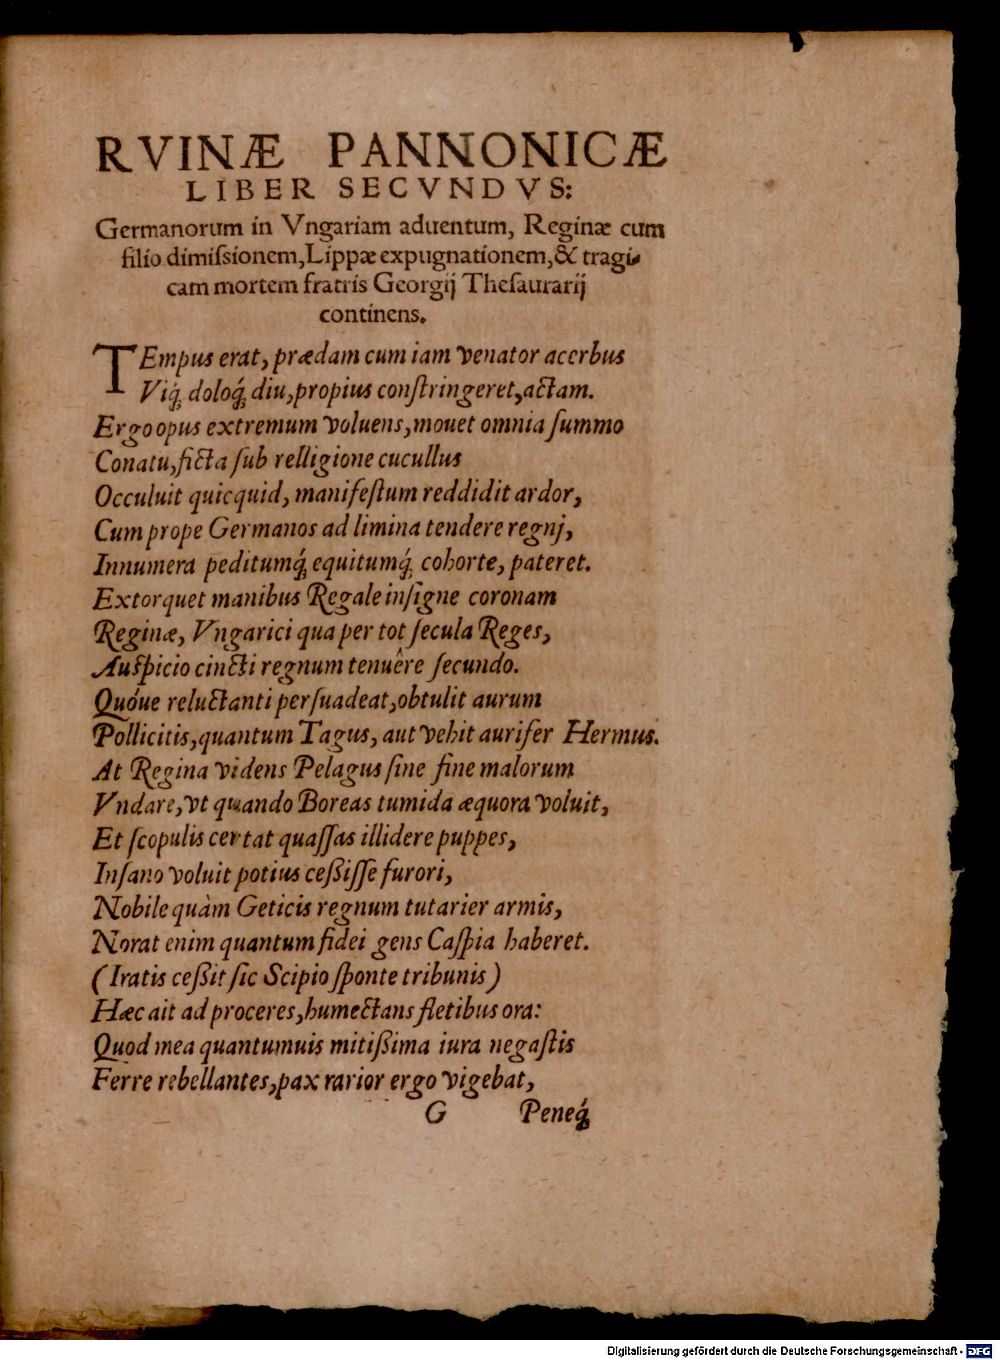 RVINÆ PANNONICÆ
LIBER SECVNDVS:
Germanorum in Vngariam aduentum, Reginæ cum
filio dimiſsionem, Lippæ expugnationem, & tragi-
cam mortem fratris Georgij Theſaurarij
continens.
TEmpus erat, prædam cum iam venator acerbus
Viq́; doloq́; diu, propius conſtringeret, actam.
Ergo opus extremum voluens, mouet omnia ſummo
Conatu, ficta ſub relligione cucullus
Occuluit quicquid, manifeſtum reddidit ardor,
Cum prope Germanos ad limina tendere regnj,
Innumera peditumq́; equitumq́; cohorte, pateret.
Extorquet manibus Regale inſigne coronam
Reginæ, Vngarici qua per tot ſecula Reges,
Auſpicio cincti regnum tenuêre ſecundo.
Quóue reluctanti perſuadeat, obtulit aurum
Pollicitis, quantum Tagus, aut vehit aurifer Hermus.
At Regina videns Pelagus ſine fine malorum
Vndare, vt quando Boreas tumida æquora voluit,
Et ſcopulis certat quaſſas illidere puppes,
Inſano voluit potius ceßiſſe furori,
Nobile quàm Geticis regnum tutarier armis,
Norat enim quantum fidei gens Caſpia haberet.
(Iratis ceßit ſic Scipio ſponte tribunis)
Hæc ait ad proceres, humectans fletibus ora:
Quod mea quantumuis mitißima iura negaſtis
Ferre rebellantes, pax rarior ergo vigebat,
G Peneq́;
Digitalisierung gefördert durch die Deutsche Forschungsgemeinschaft - DFG